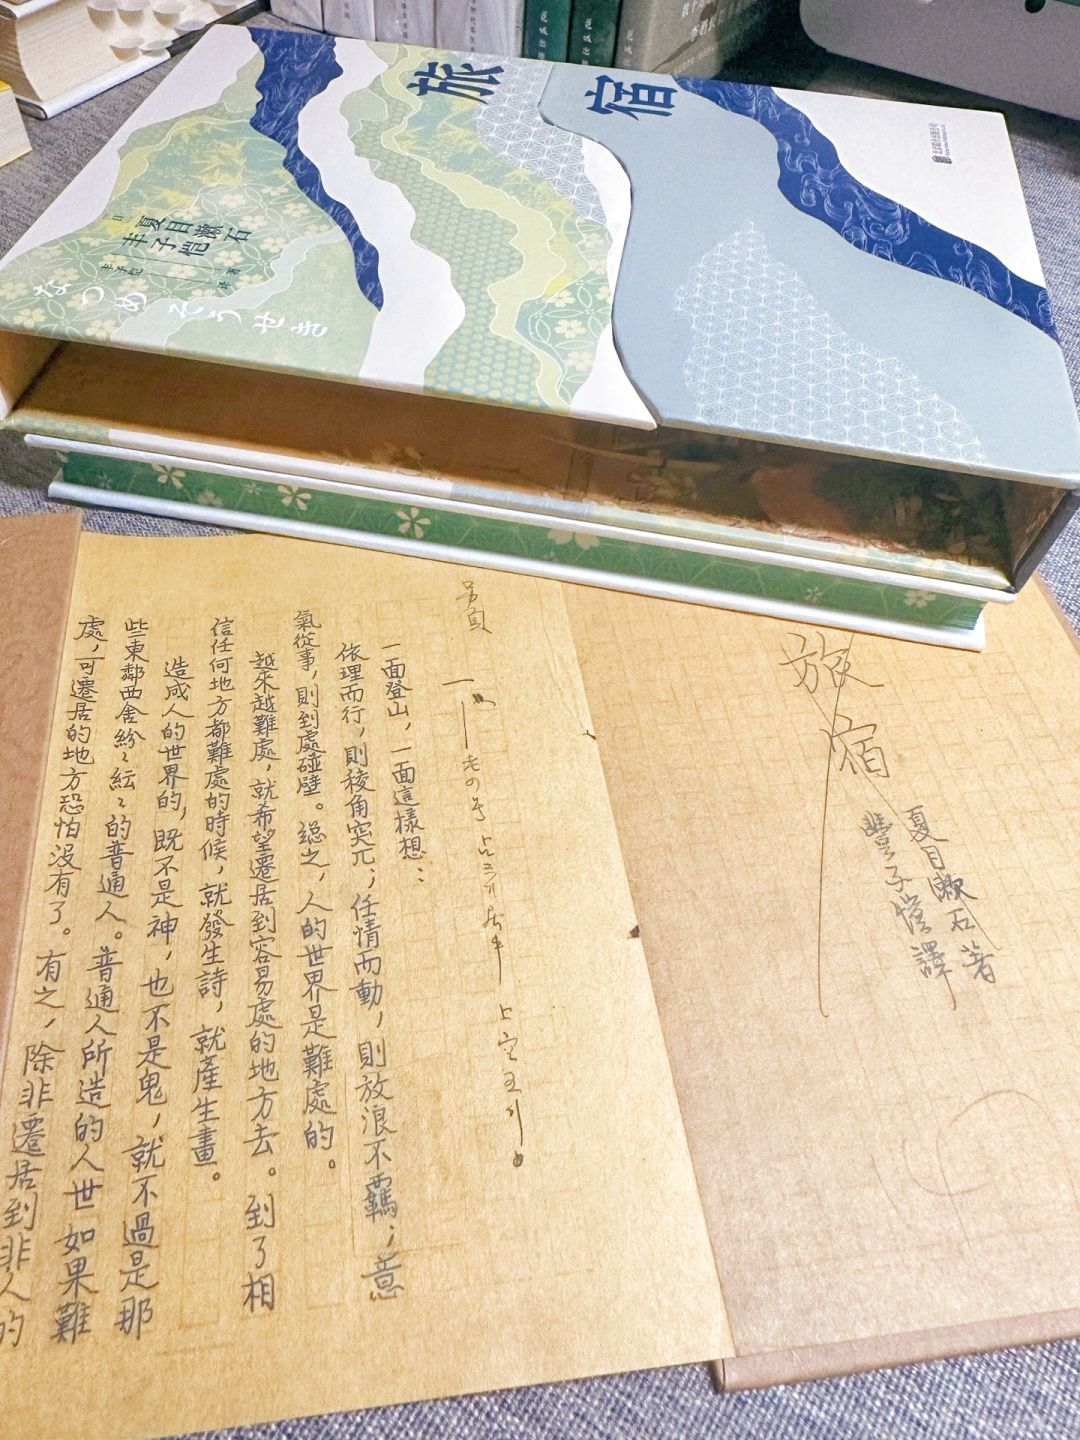 旅宿
〔日〕夏目漱石 著
丰子恺
丰子恺 译
なつめ そうせき
花城出版
花城出版
旅宿
夏目漱石著
豐子愷譯
另頁
一
一面登山，一面這樣想：
依理而行，則稜角突兀；任情而動，則放浪不羈；意
氣從事，則到處碰壁。總之，人的世界是難處的。
越來越難處，就希望遷居到容易處的地方去。到了相
信任何地方都難處的時候，就發生詩，就產生畫。
造成人的世界的，既不是神，也不是鬼，就不過是那
些東鄰西舍紛〻紜〻的普通人。普通人所造的人世如果難
處，可遷居的地方恐怕沒有了。有之，除非遷居到非人的